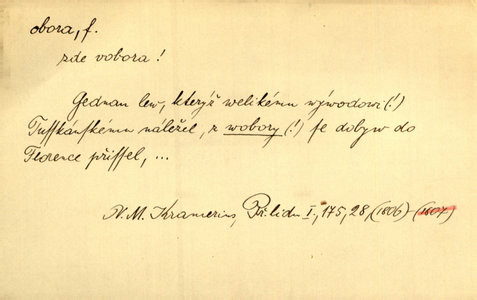 obora, f.
zde vobora!
Gednau lew, kterýž welikému wýwodowi (!)
Tusskánskému náležel, z wobory (!) se dobyw do
Florence přissel, ...
N. M. Kramerius, Př. lidu I., 175, 28, (1806) - (1807)